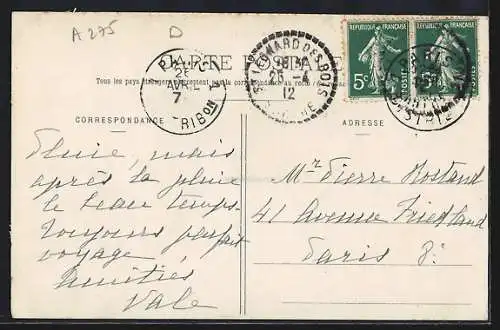 A 275
D
CARTE POSTALE
Tous les pays étrangers n'acceptent pas la correspondance au recto
ST LEONARD DES BOIS
26 -4
12
REPUBLIQUE FRANÇAISE
REPUBLIQUE FRANÇAISE
5c
POSTES
5c
PARIS
26
AVRIL
7
RIBON
PARIS
CORRESPONDANCE
ADRESSE
Pluie, mais
après la pluie
le beau temps.
toujours parfait
voyage
Amitiés
Vale
Mr Pierre Rostand
41 Avenue Friedland
Paris 8e